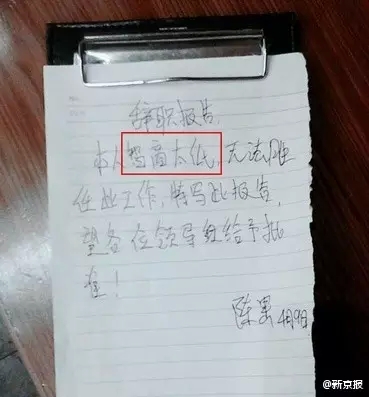 辞职报告
本人智商太低,无法胜
任此工作,特写此报告,
望各位领导能给予批
准!
陈果 4月9日
@新京报